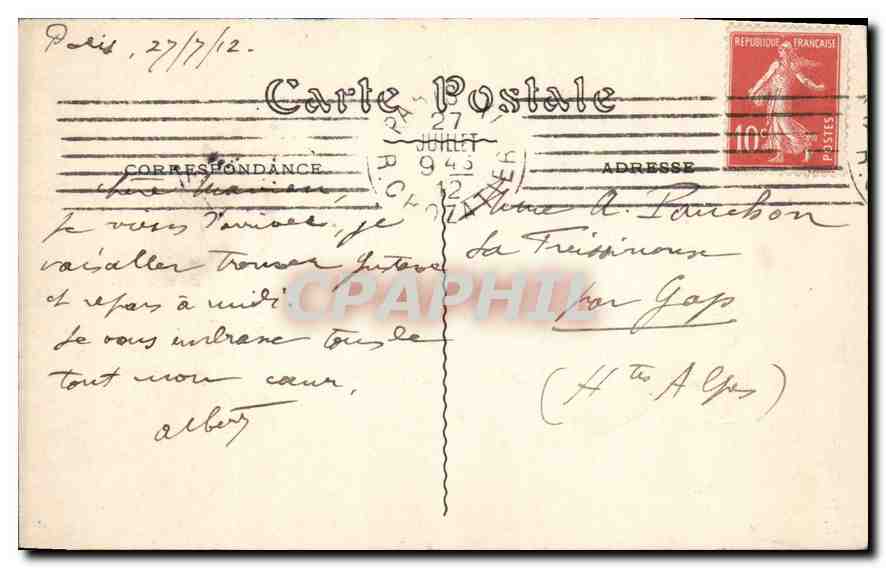 Paris, 27/7/12.
Carte Postale
RÉPUBLIQUE FRANÇAISE
10c
POSTES
PARIS
27
JUILLET
9 45
12
CORRESPONDANCE
ADRESSE
Chère Maman,
Je viens d'arriver, je
vais aller trouver Gustave
et repars à midi.
Je vous embrasse tous de
tout mon cœur,
Albert
Mme A. Pauchon
La Freissinouse
par Gap
(Htes Alpes)
CPAPHIL